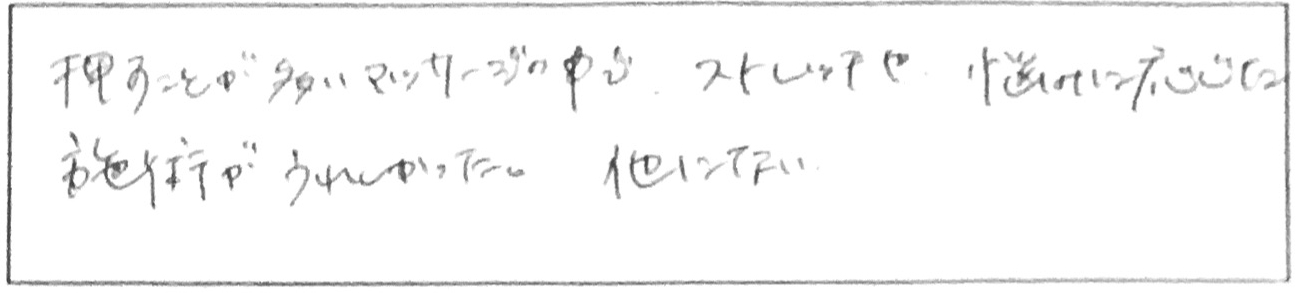 押すことが多いマッサージの中で、ストレッチや、悩みに応じた
施術がうれしかった。 他にない。